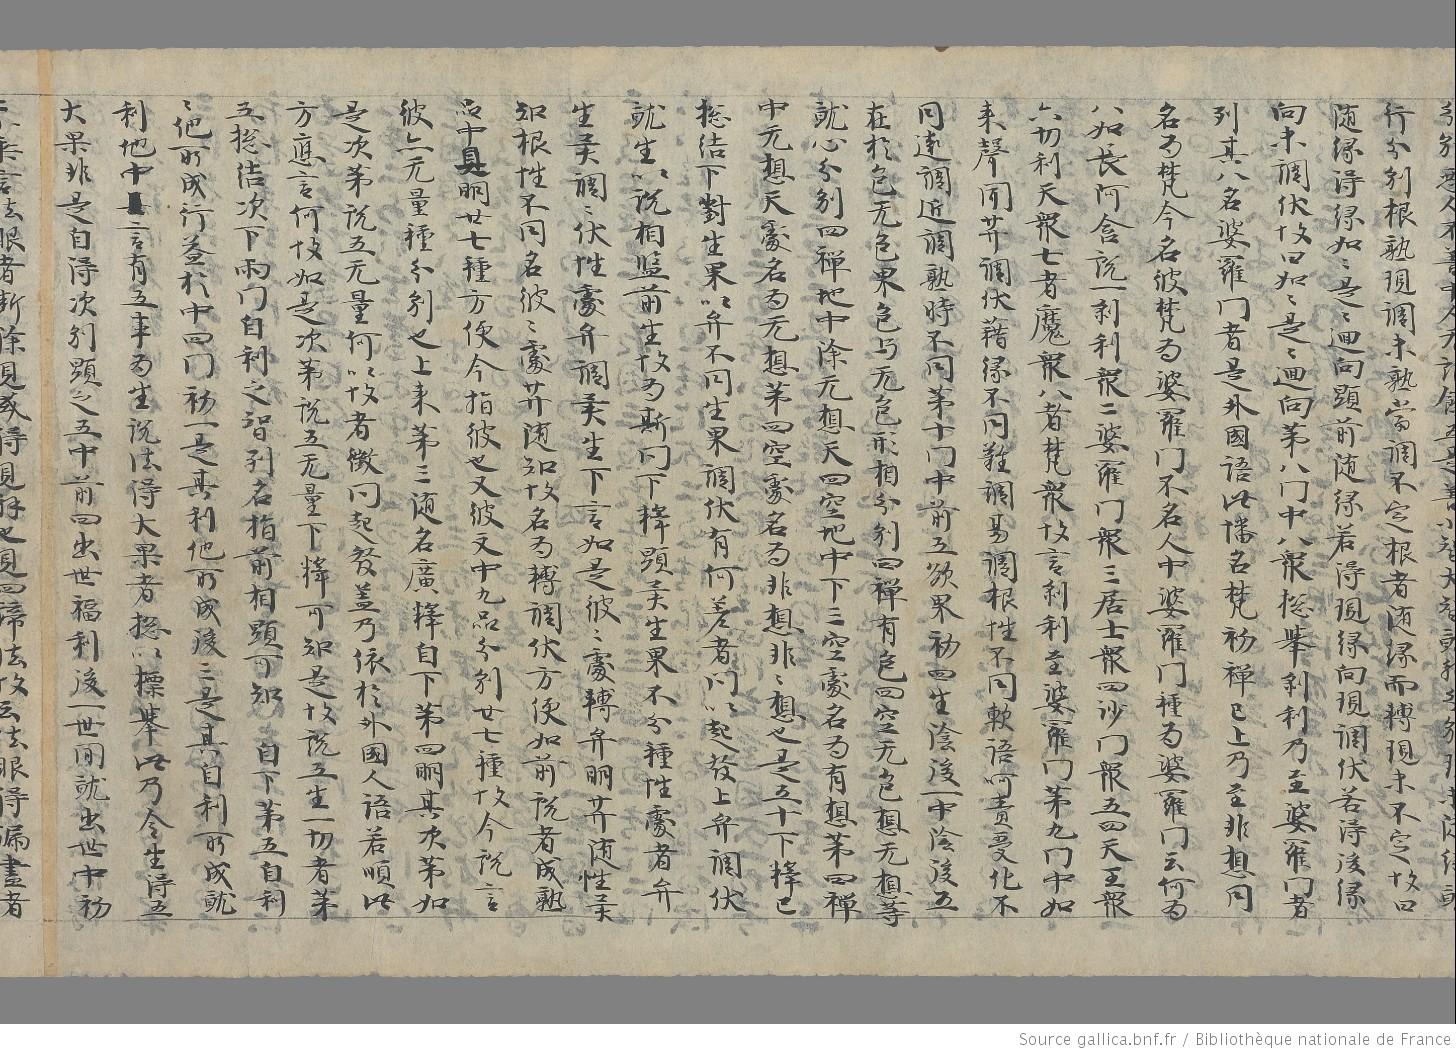 行分別根熟現調未熟當調不定根者随縁而轉現未不定故曰
随縁得縁如々是々迴向顕前随縁若得現縁向現調伏若得後縁
向未調伏故曰如々是々迴向第八門中八衆捴舉刹利乃至婆羅門者
列其八名婆羅門者是外國語此幡名梵初禅已上乃至非想同
名為梵今名彼梵為婆羅門不名人中婆羅門種為婆羅門云何為
八如長阿含説一刹利衆二婆羅門衆三居士衆四沙門衆五四天王衆
六忉利天衆七者魔衆八者梵衆故言刹利至婆羅門第九門中如
来聲聞菩薩調伏藉縁不同難調易調根性不同軟語呵責受化不
同遠調近調熟時不同第十門中前五欲果初四生陰後一中陰後五
在於色无色果色与无色形相分別四禅有色四空无色想无想等
就心分別四禅地中除无想天四空地中下三空處名為有想第四禅
中无想天處名為无想第四空處名為非想非々想也是五十下釋已
捴結下對生果以弁不同生果調伏有何差者問以起發上弁調伏
就生以説相監前生故為斯問下釋顕
生 調々伏性處弁調 生下言如是彼々處轉弁明菩薩随性
知根性不同名彼々處菩薩随知故名為轉調伏方便如前説者成熟
品中具明卅七種方便今指彼也又彼文中九品分別卅七種故今説言
彼亦无量種分別也上来第三随名廣釋自下第四明其次第如
是次第説五无量何以故者徴問起發蓋乃依於外國人語若順此
方應言何故如是次第説五无量下釋可知是故説五生一切者第
五捴結次下兩門自利之智列名指前相顕可知　自下第五自利
々他所成行益於中四門初一是其利他所成後三是其自利所成就
利地中　言有五事為生説法得大果者捴以標舉此乃令生得五
大果非是自得次列顕之五中前四出世福利後一世間就出世中初